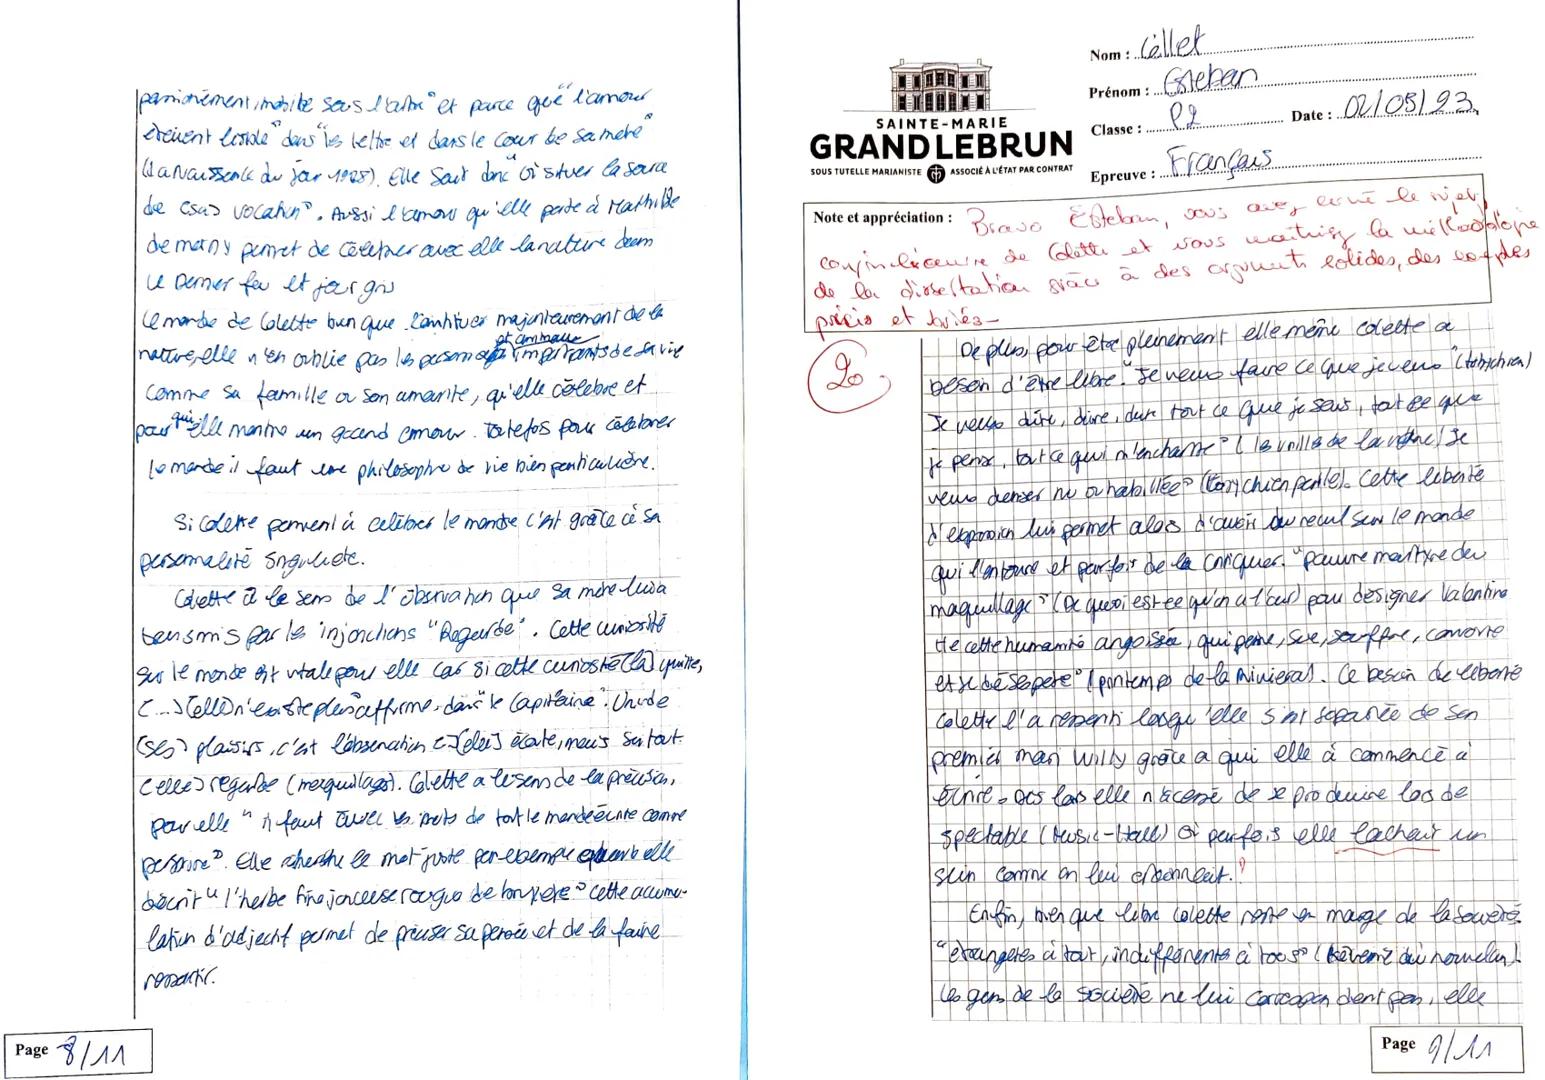 passionément, mobile sous l'astre" et parce que "l'amour
étaient éclos" dans "les bêtes et dans le cœur de sa mère"
(La Naissance du jour 1928). Elle sait donc où situer la source
de (sa) vocation". Aussi l'amour qu'elle porte à Mathilde
de morny permet de célébrer avec elle la nature dans
Le Dernier feu et jour gris
Le monde de Colette bien que majoritairement de la
et animaux
nature, elle n'en oublie pas les personnages importants de sa vie
comme sa famille ou son amante, qu'elle célèbre et
pour qui elle montre un grand amour. Toutefois pour célébrer
le monde il faut une philosophie de vie bien particulière.
Si Colette parvient à célébrer le monde c'est grâce à sa
personnalité singulière.
Colette a le sens de l'observation que sa mère lui a
transmis par les injonctions "Regarde". Cette curiosité
sur le monde est vitale pour elle car si cette curiosité (la) quitte,
(...) (elle) n'existe plus" affirme, dans "le Capitaine". Un de
(ses) plaisirs, c'est l'observation (elle) écoute, mais surtout
(elle) regarde (maquillages). Colette a le sens de la précision,
pour elle "il faut avec les mots de tout le monde écrire comme
personne". Elle cherche le mot juste par exemple quand elle
décrit "l'herbe fine jonceuse rougie de bruyère" cette accumu-
lation d'adjectif permet de préciser sa pensée et de la faire
ressortir.
Page 8/11
SAINTE-MARIE
GRAND LEBRUN
SOUS TUTELLE MARIANISTE ASSOCIÉ À L'ÉTAT PAR CONTRAT
Nom : Cellet
Prénom : Esteban
Classe : P2 Date : 02/05/23
Epreuve : Français
Note et appréciation : Bravo Esteban, vous avez cerné le sujet,
de Colette et vous maîtrisez la méthodologie
de la dissertation grâce à des arguments solides, des exemples
précis et variés-
20
De plus, pour être pleinement elle même colette a
besoin d'être libre. "Je veux faire ce que je veux" (toby chien)
Je veux dire, dire, dire tout ce que je sais, tout ce que
je pense, tout ce qui m'enchante" (les vrilles de la vigne) Je
veux danser nu ou habillée" (toby chien parle). Cette liberté
d'expression lui permet alors d'avoir du recul sur le monde
qui l'entoure et parfois de la critiquer. "pauvre martyre du
maquillage" (De quoi est-ce qu'on a l'air) pour désigner Valentine
de cette humanité angoissée, qui peine, sue, souffre, convoite
et se désespère" (printemps de la Riviera). Ce besoin de liberté
Colette l'a ressenti lorsqu'elle s'est séparée de son
premier mari Willy grâce a qui elle à commencé à
écrire. Dès lors elle n'a cessé de se produire lors de
spectable (Music-Hall) où parfois elle lachait un
sein comme on lui ordonnait.?
Enfin, bien que libre Colette reste en marge de la société
"étrangères à tout, indifférente à tous" (Rêverie du nouvel an)
les gens de la société ne lui correspondent pas, elle
Page 9/11